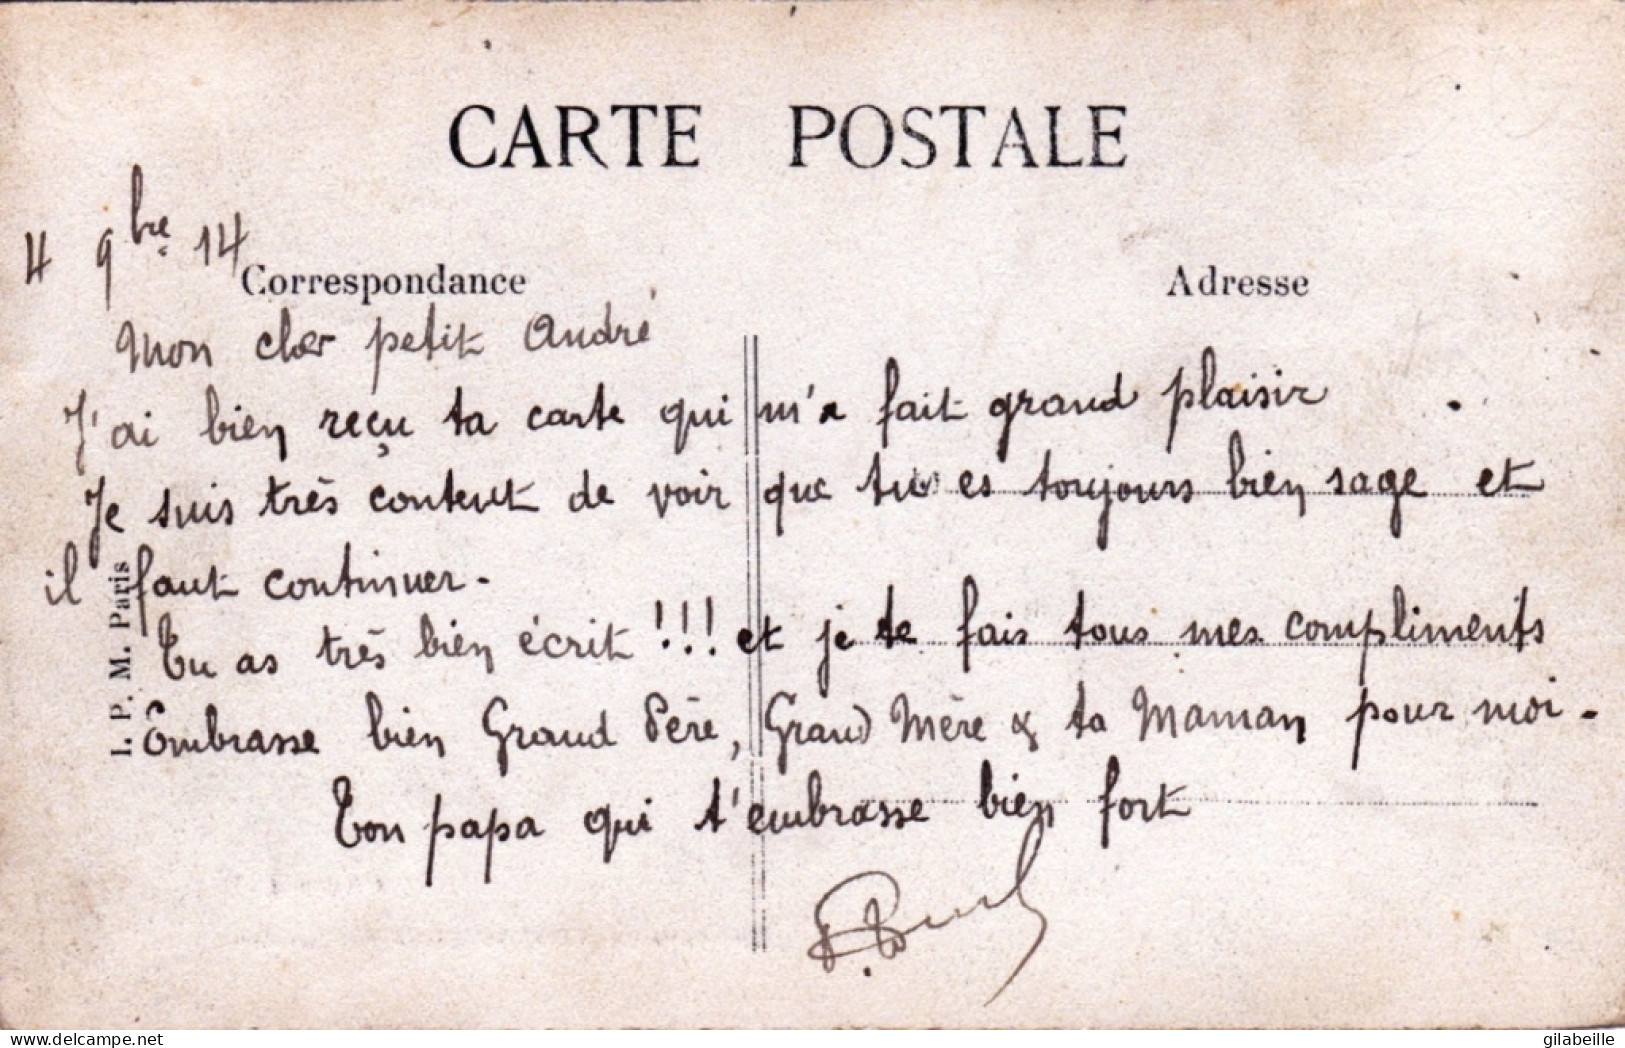 CARTE POSTALE
4 9bre 14
Correspondance
Adresse
Mon cher petit André
J'ai bien reçu ta carte qui m'a fait grand plaisir
Je suis très content de voir que tu es toujours bien sage et
il faut continuer.
Tu as très bien écrit !!! et je te fais tous mes compliments
Embrasse bien Grand Père, Grand Mère & ta Maman pour moi.
Ton papa qui t'embrasse bien fort
I. P. M. Paris
www.delcampe.net
gilabeille